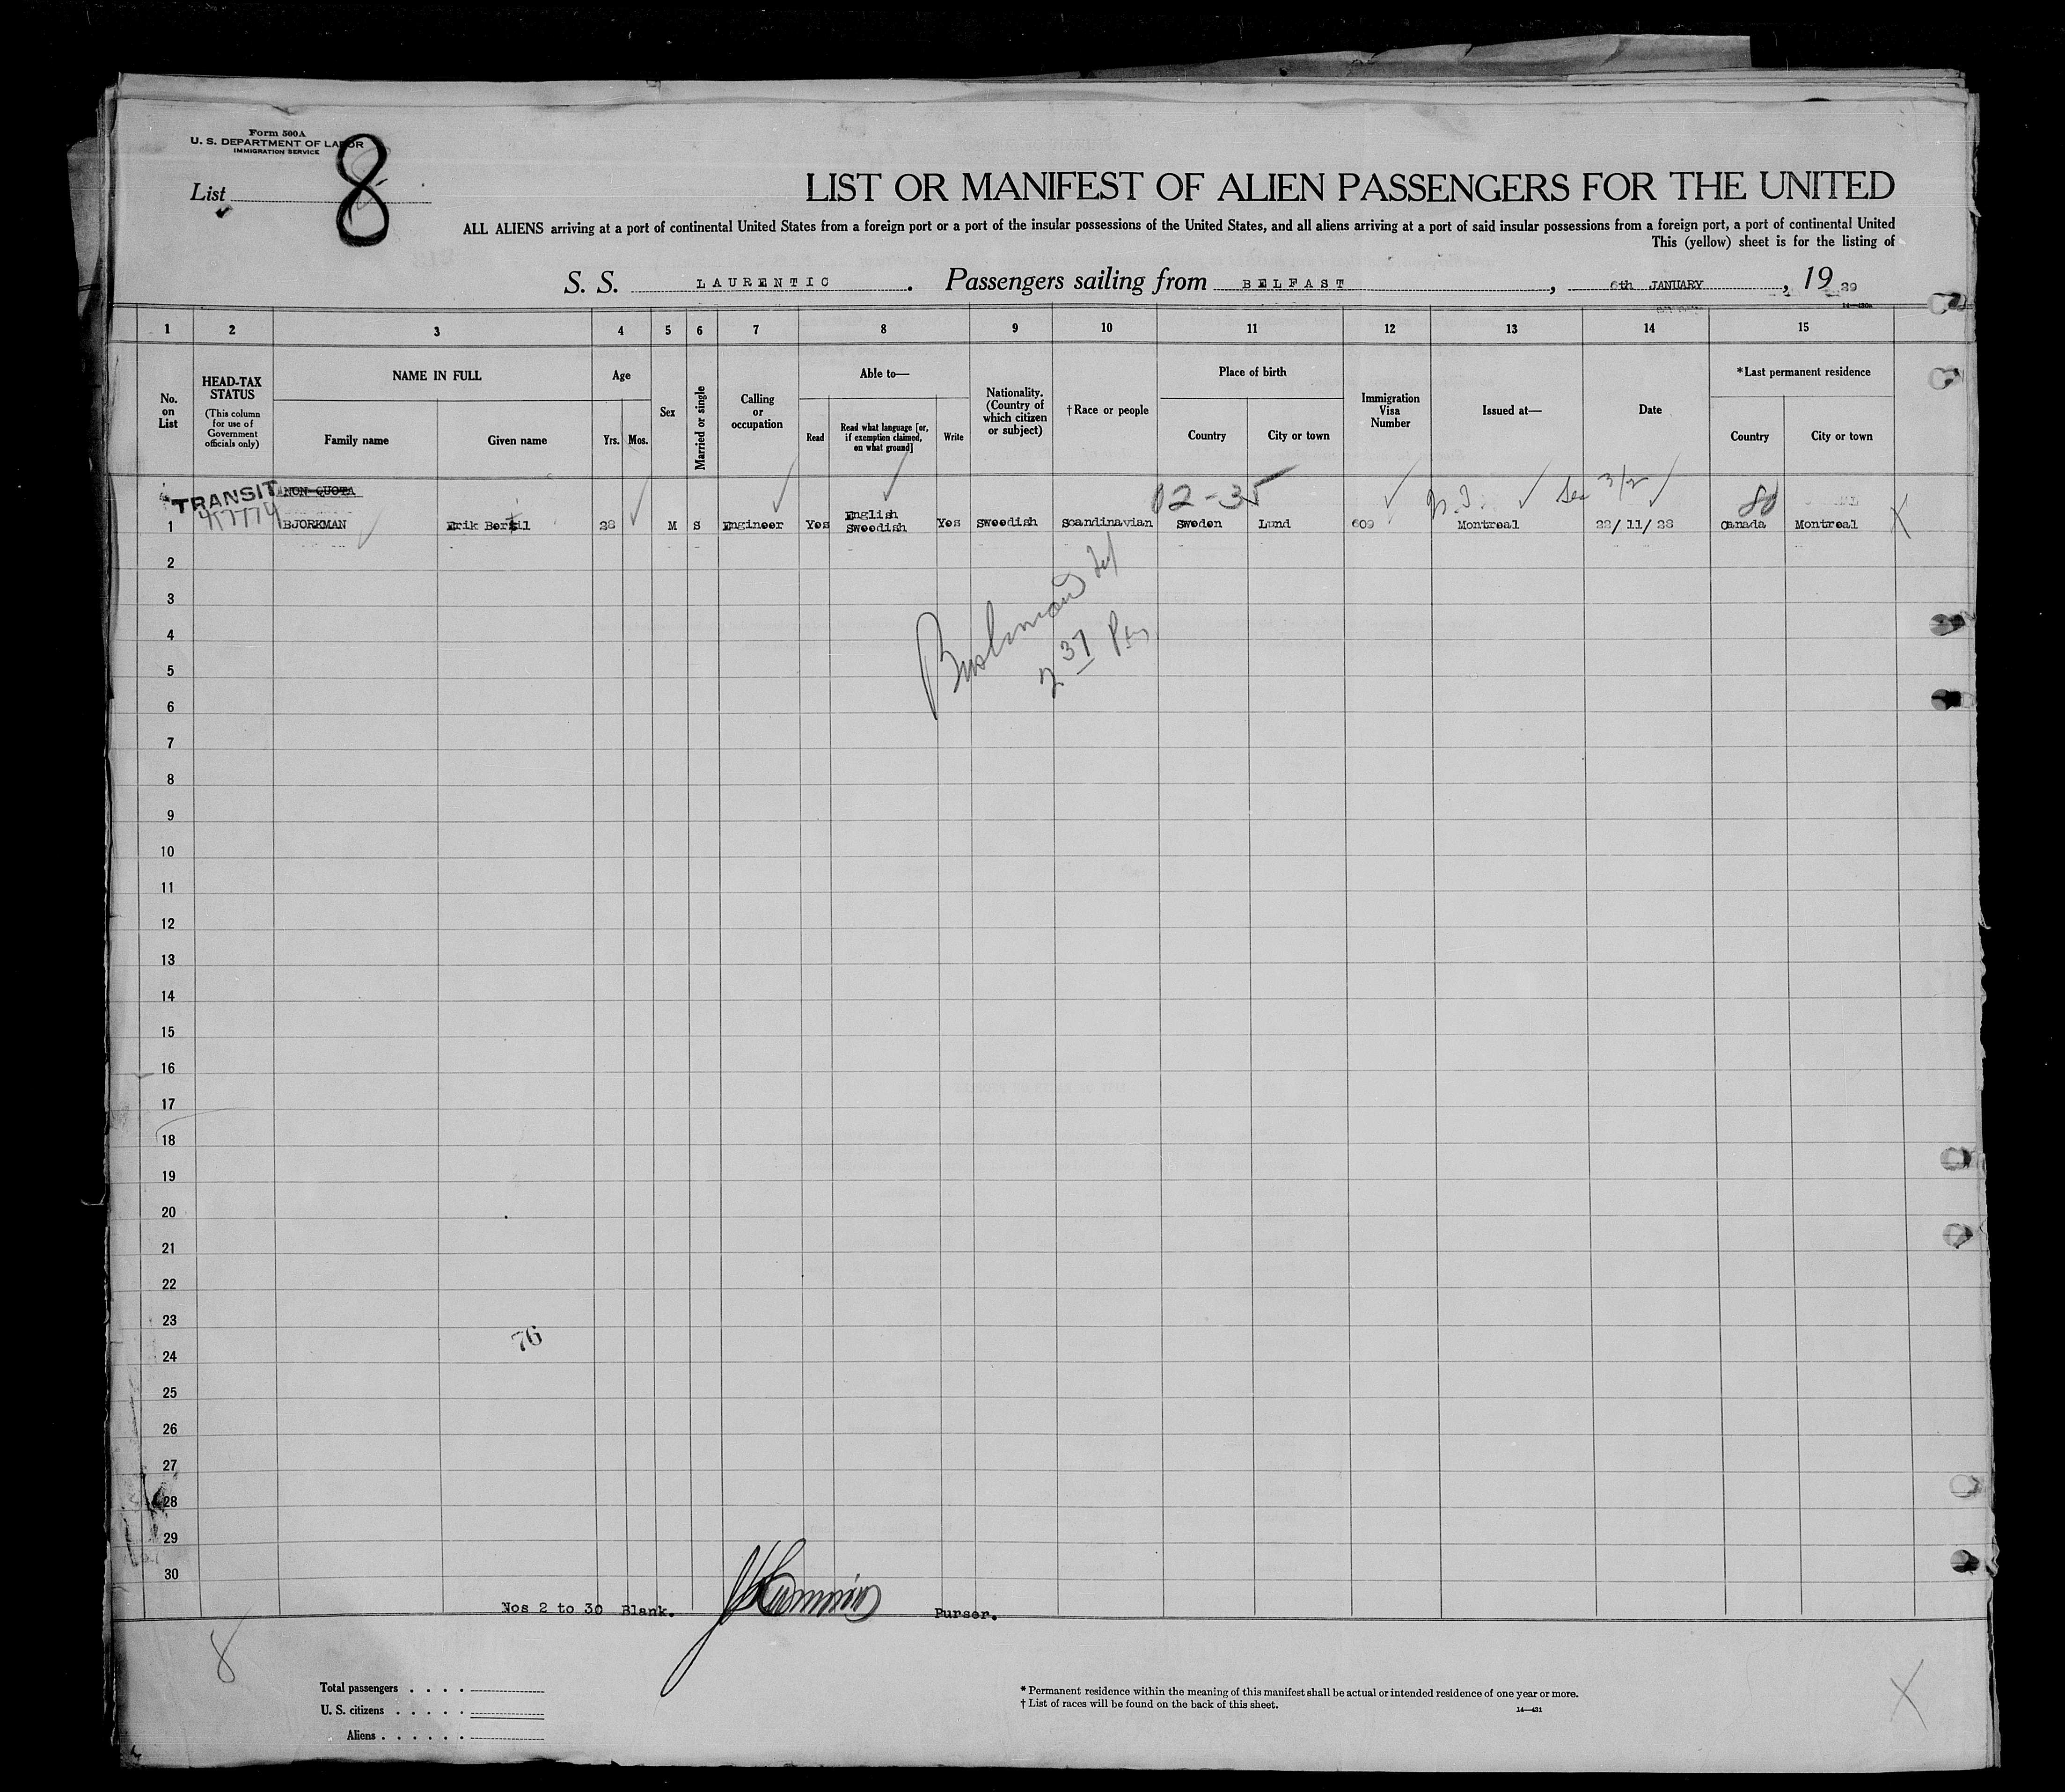 Form 500A
U. S. DEPARTMENT OF LABOR
IMMIGRATION SERVICE
List 8
LIST OR MANIFEST OF ALIEN PASSENGERS FOR THE UNITED
ALL ALIENS arriving at a port of continental United States from a foreign port or a port of the insular possessions of the United States, and all aliens arriving at a port of said insular possessions from a foreign port, a port of continental United
This (yellow) sheet is for the listing of
S. S. LAURENTIC . Passengers sailing from BELFAST , 6th JANUARY , 19 29
1 2 3 4 5 6 7 8 9 10 11 12 13 14 15
No. on List
HEAD-TAX STATUS
(This column for use of Government officials only)
NAME IN FULL
Family name
Given name
Age
Yrs.
Mos.
Sex
Married or single
Calling or occupation
Able to—
Read
Read what language [or, if exemption claimed, on what ground]
Write
Nationality. (Country of which citizen or subject)
†Race or people
Place of birth
Country
City or town
Immigration Visa Number
Issued at—
Date
*Last permanent residence
Country
City or town
TRANSIT NON QUOTA 12-35 80
1 BJORKMAN Erik Bertil 28 M S Engineer Yes English Swedish Yes Swedish Scandinavian Sweden Lund 609 Montreal 22/11/28 Canada Montreal
2
3
4
5
6
7
8
9
10
11
12
13
14
15
16
17
18
19
20
21
22
23
76
24
25
26
27
28
29
30
Nos 2 to 30 Blank. Purser.
8
X
Total passengers . . . .
U. S. citizens . . . . .
Aliens . . . . . .
* Permanent residence within the meaning of this manifest shall be actual or intended residence of one year or more.
† List of races will be found on the back of this sheet.
14—431